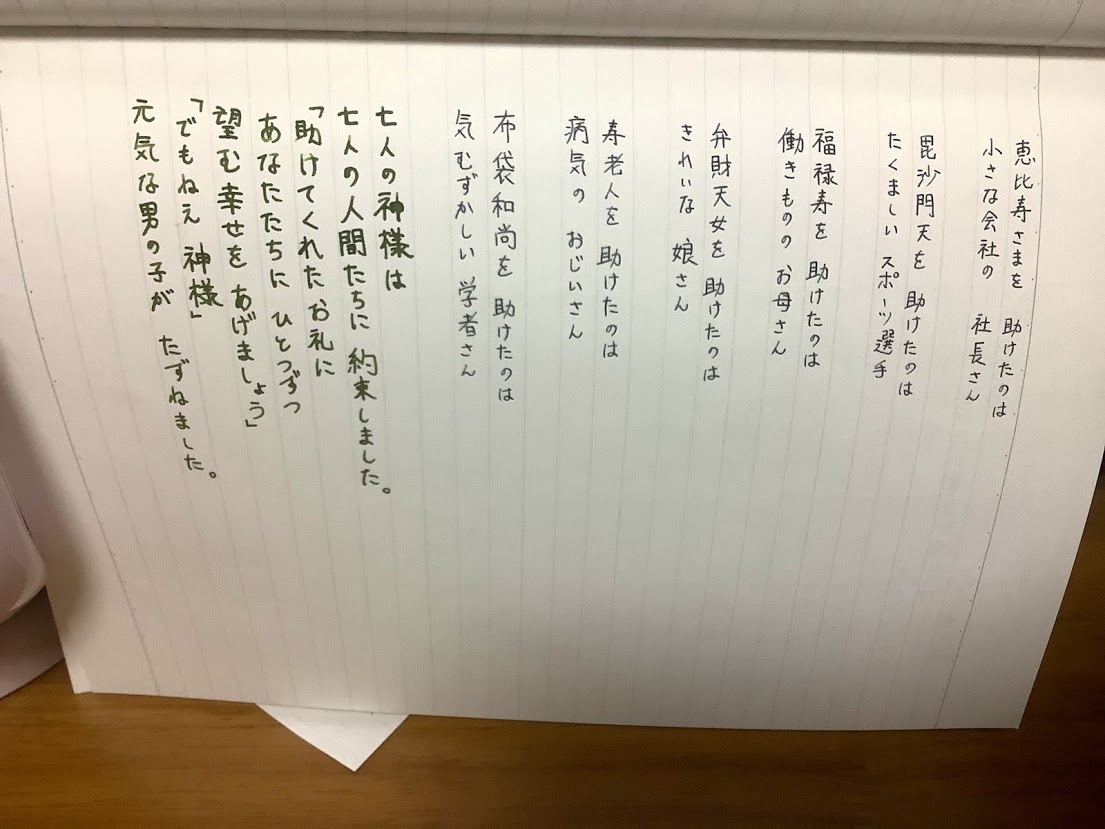 恵比寿さまを 助けたのは
小さな会社の 社長さん
毘沙門天を 助けたのは
たくましい スポーツ選手
福禄寿を 助けたのは
働きものの お母さん
弁財天女を 助けたのは
きれいな 娘さん
寿老人を 助けたのは
病気の おじいさん
布袋和尚を 助けたのは
気むずかしい 学者さん
七人の神様は
七人の人間たちに 約束しました。
「助けてくれたお礼に
あなたたちに ひとつずつ
望む幸せを あげましょう」
「でもねえ 神様」
元気な男の子が たずねました。